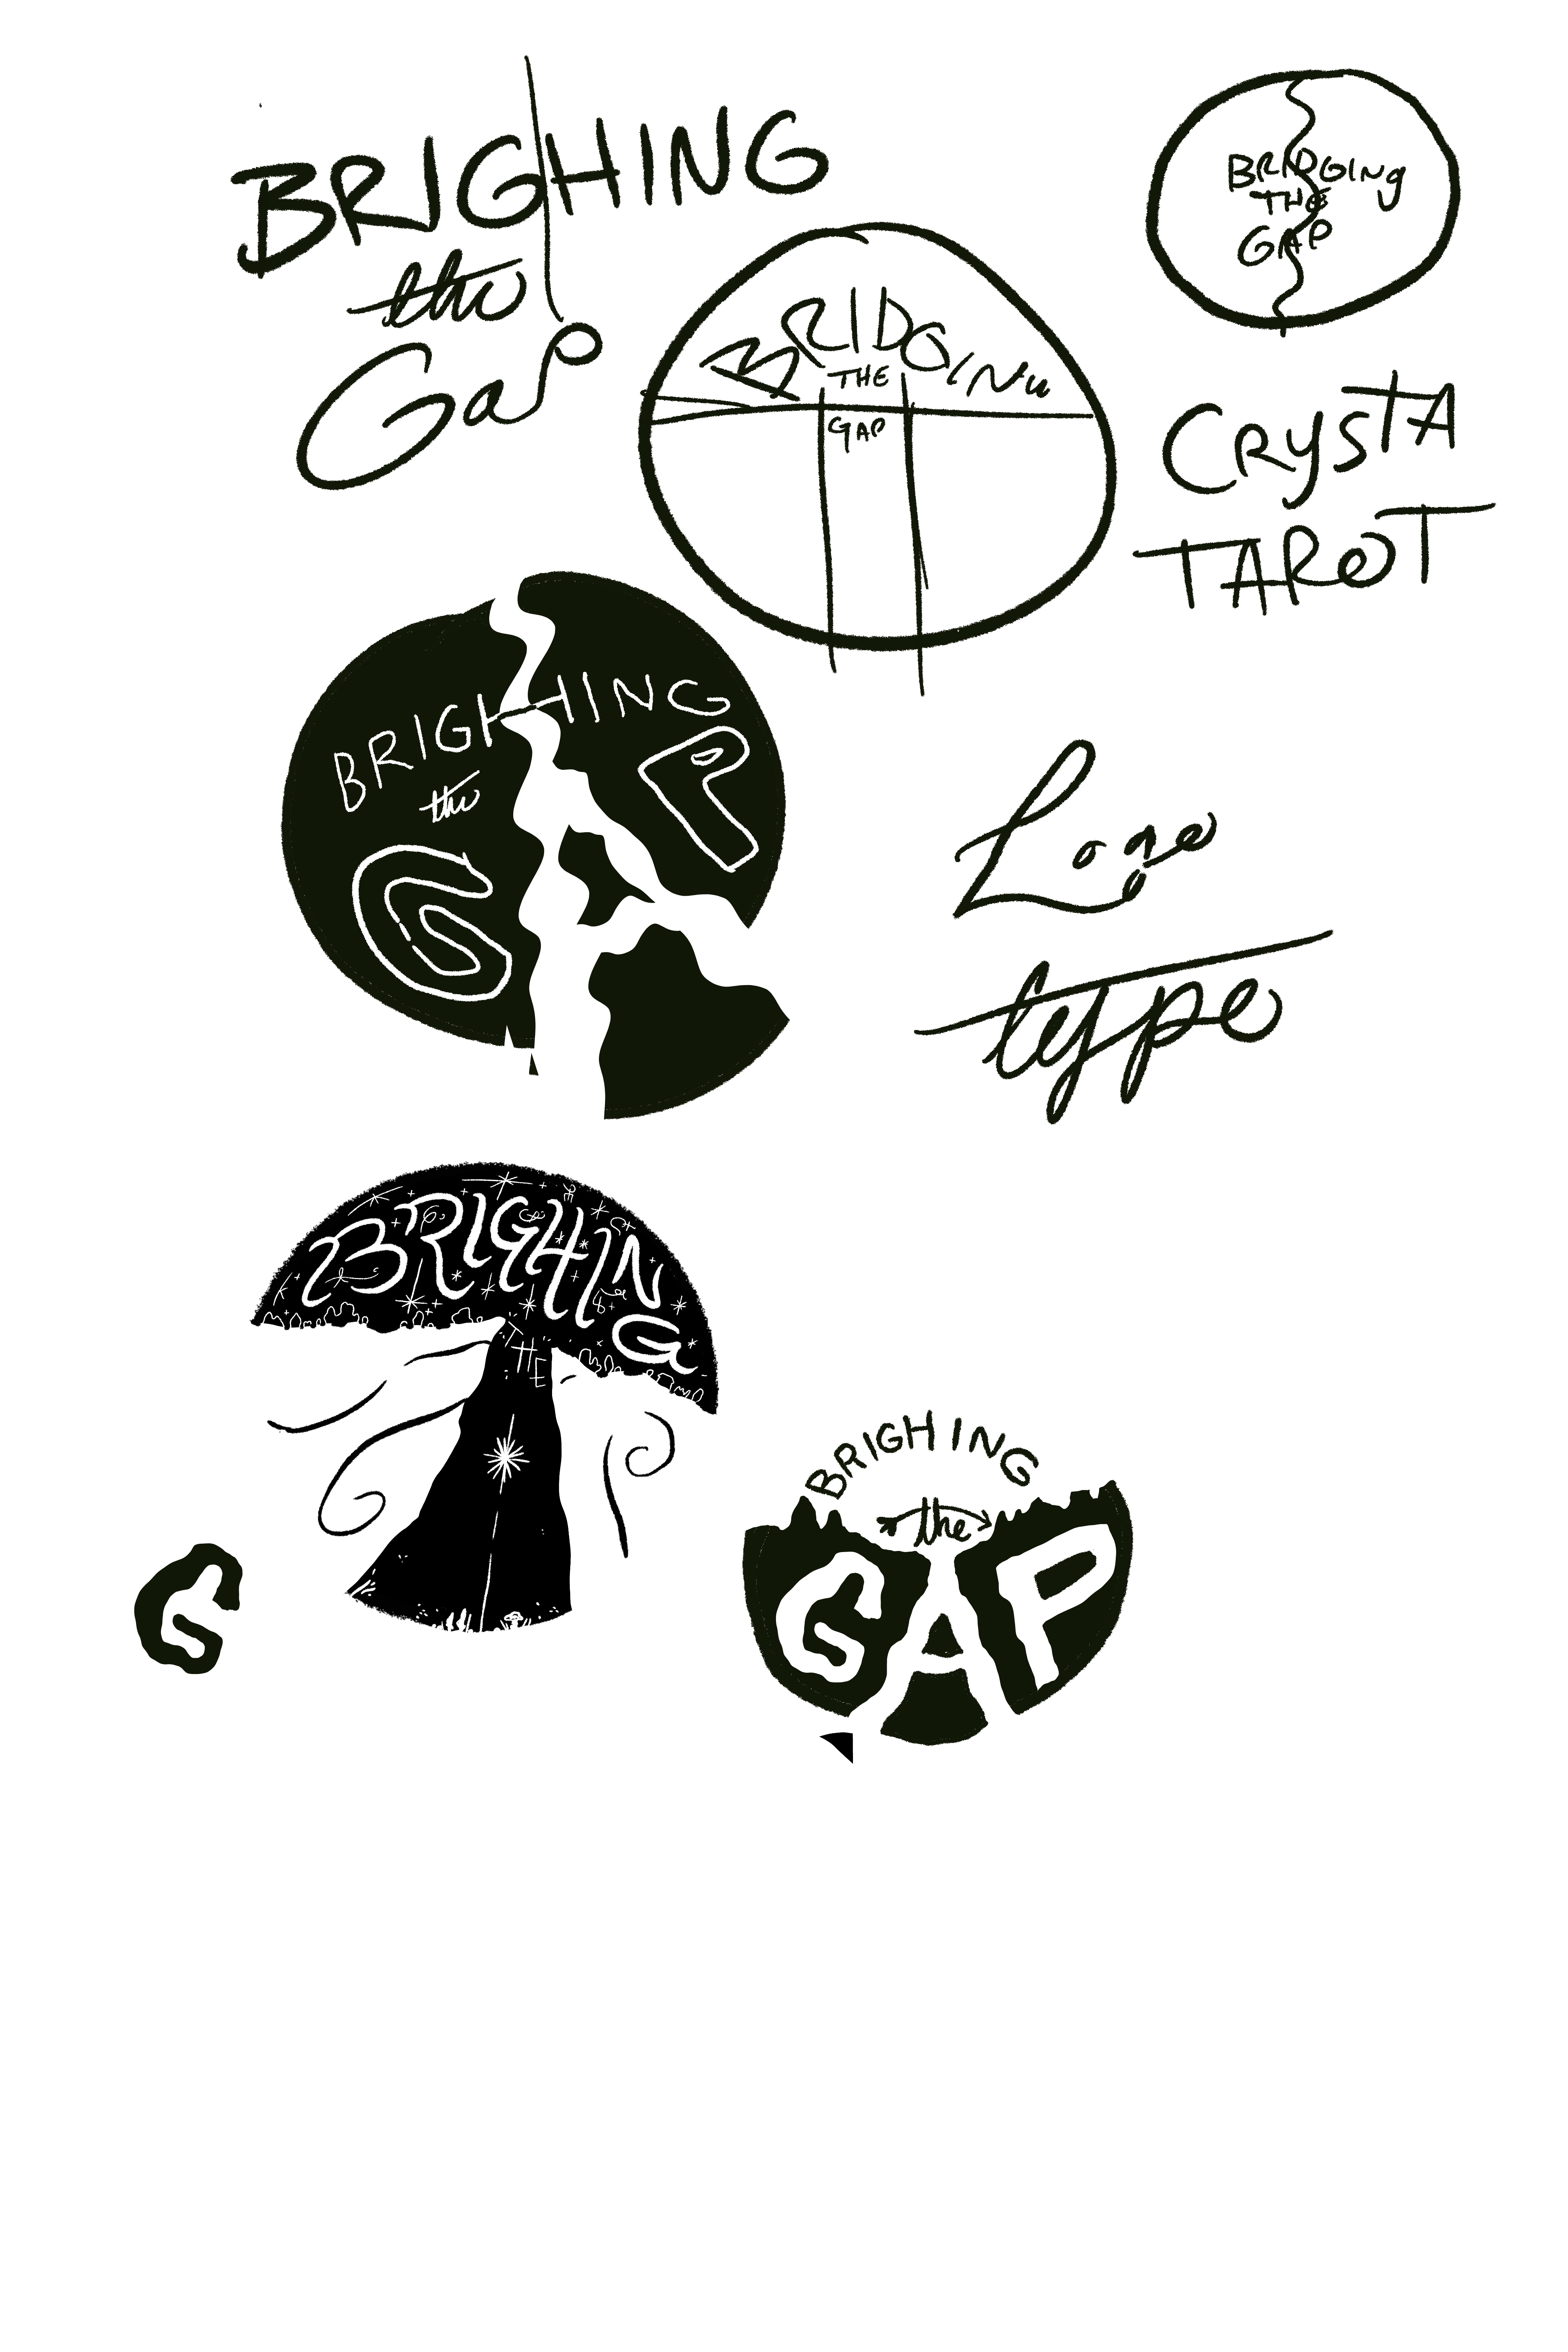 BRIGHING
the
Gap
BRIDGING
THE
GAP
BRIDGING
THE
GAP
CRYSTA
TAROT
BRIGHING
the
G P
Logo
type
BRIGHING
THE
G P
BRIGHING
the
GAP
G